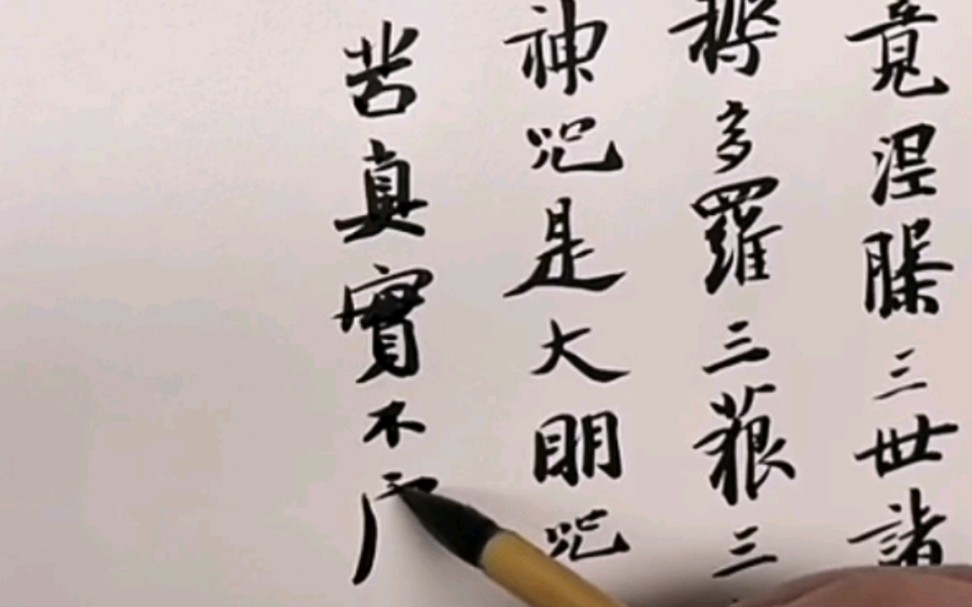 竟涅槃三世諸
耨多羅三藐三
神咒是大明咒
苦真實不